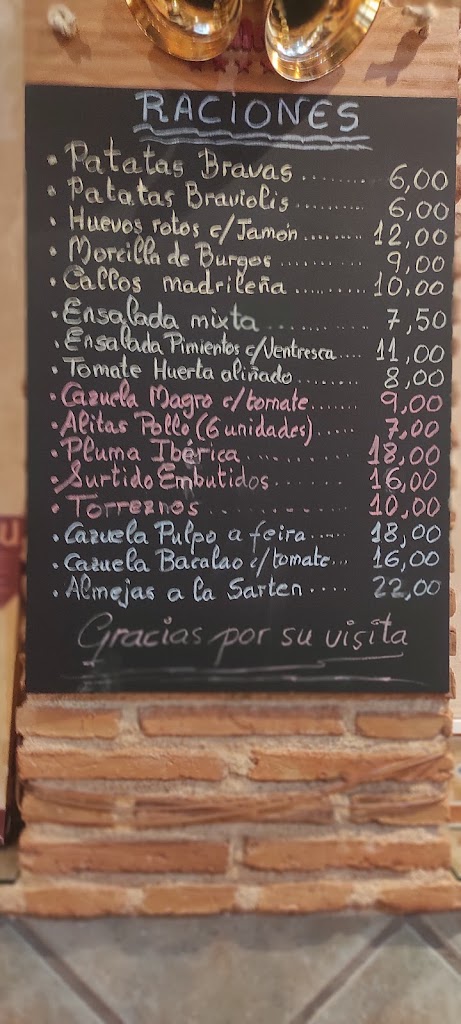 RACIONES
• Patatas Bravas ........ 6,00
• Patatas Braviolis .......... 6,00
• Huevos rotos c/Jamón ......... 12,00
• Morcilla de Burgos ......... 9,00
• Callos madrileña ......... 10,00
• Ensalada mixta ......... 7,50
• Ensalada Pimientos c/Ventresca .... 11,00
• Tomate Huerta aliñado ........ 8,00
• Cazuela Magro c/tomate ...... 9,00
• Alitas Pollo (6 unidades) ...... 7,00
• Pluma Ibérica ............ 18,00
• Surtido Embutidos ......... 16,00
• Torreznos ............ 10,00
• Cazuela Pulpo a feira ..... 18,00
• Cazuela Bacalao c/tomate ... 16,00
• Almejas a la Sarten ..... 22,00
Gracias por su visita